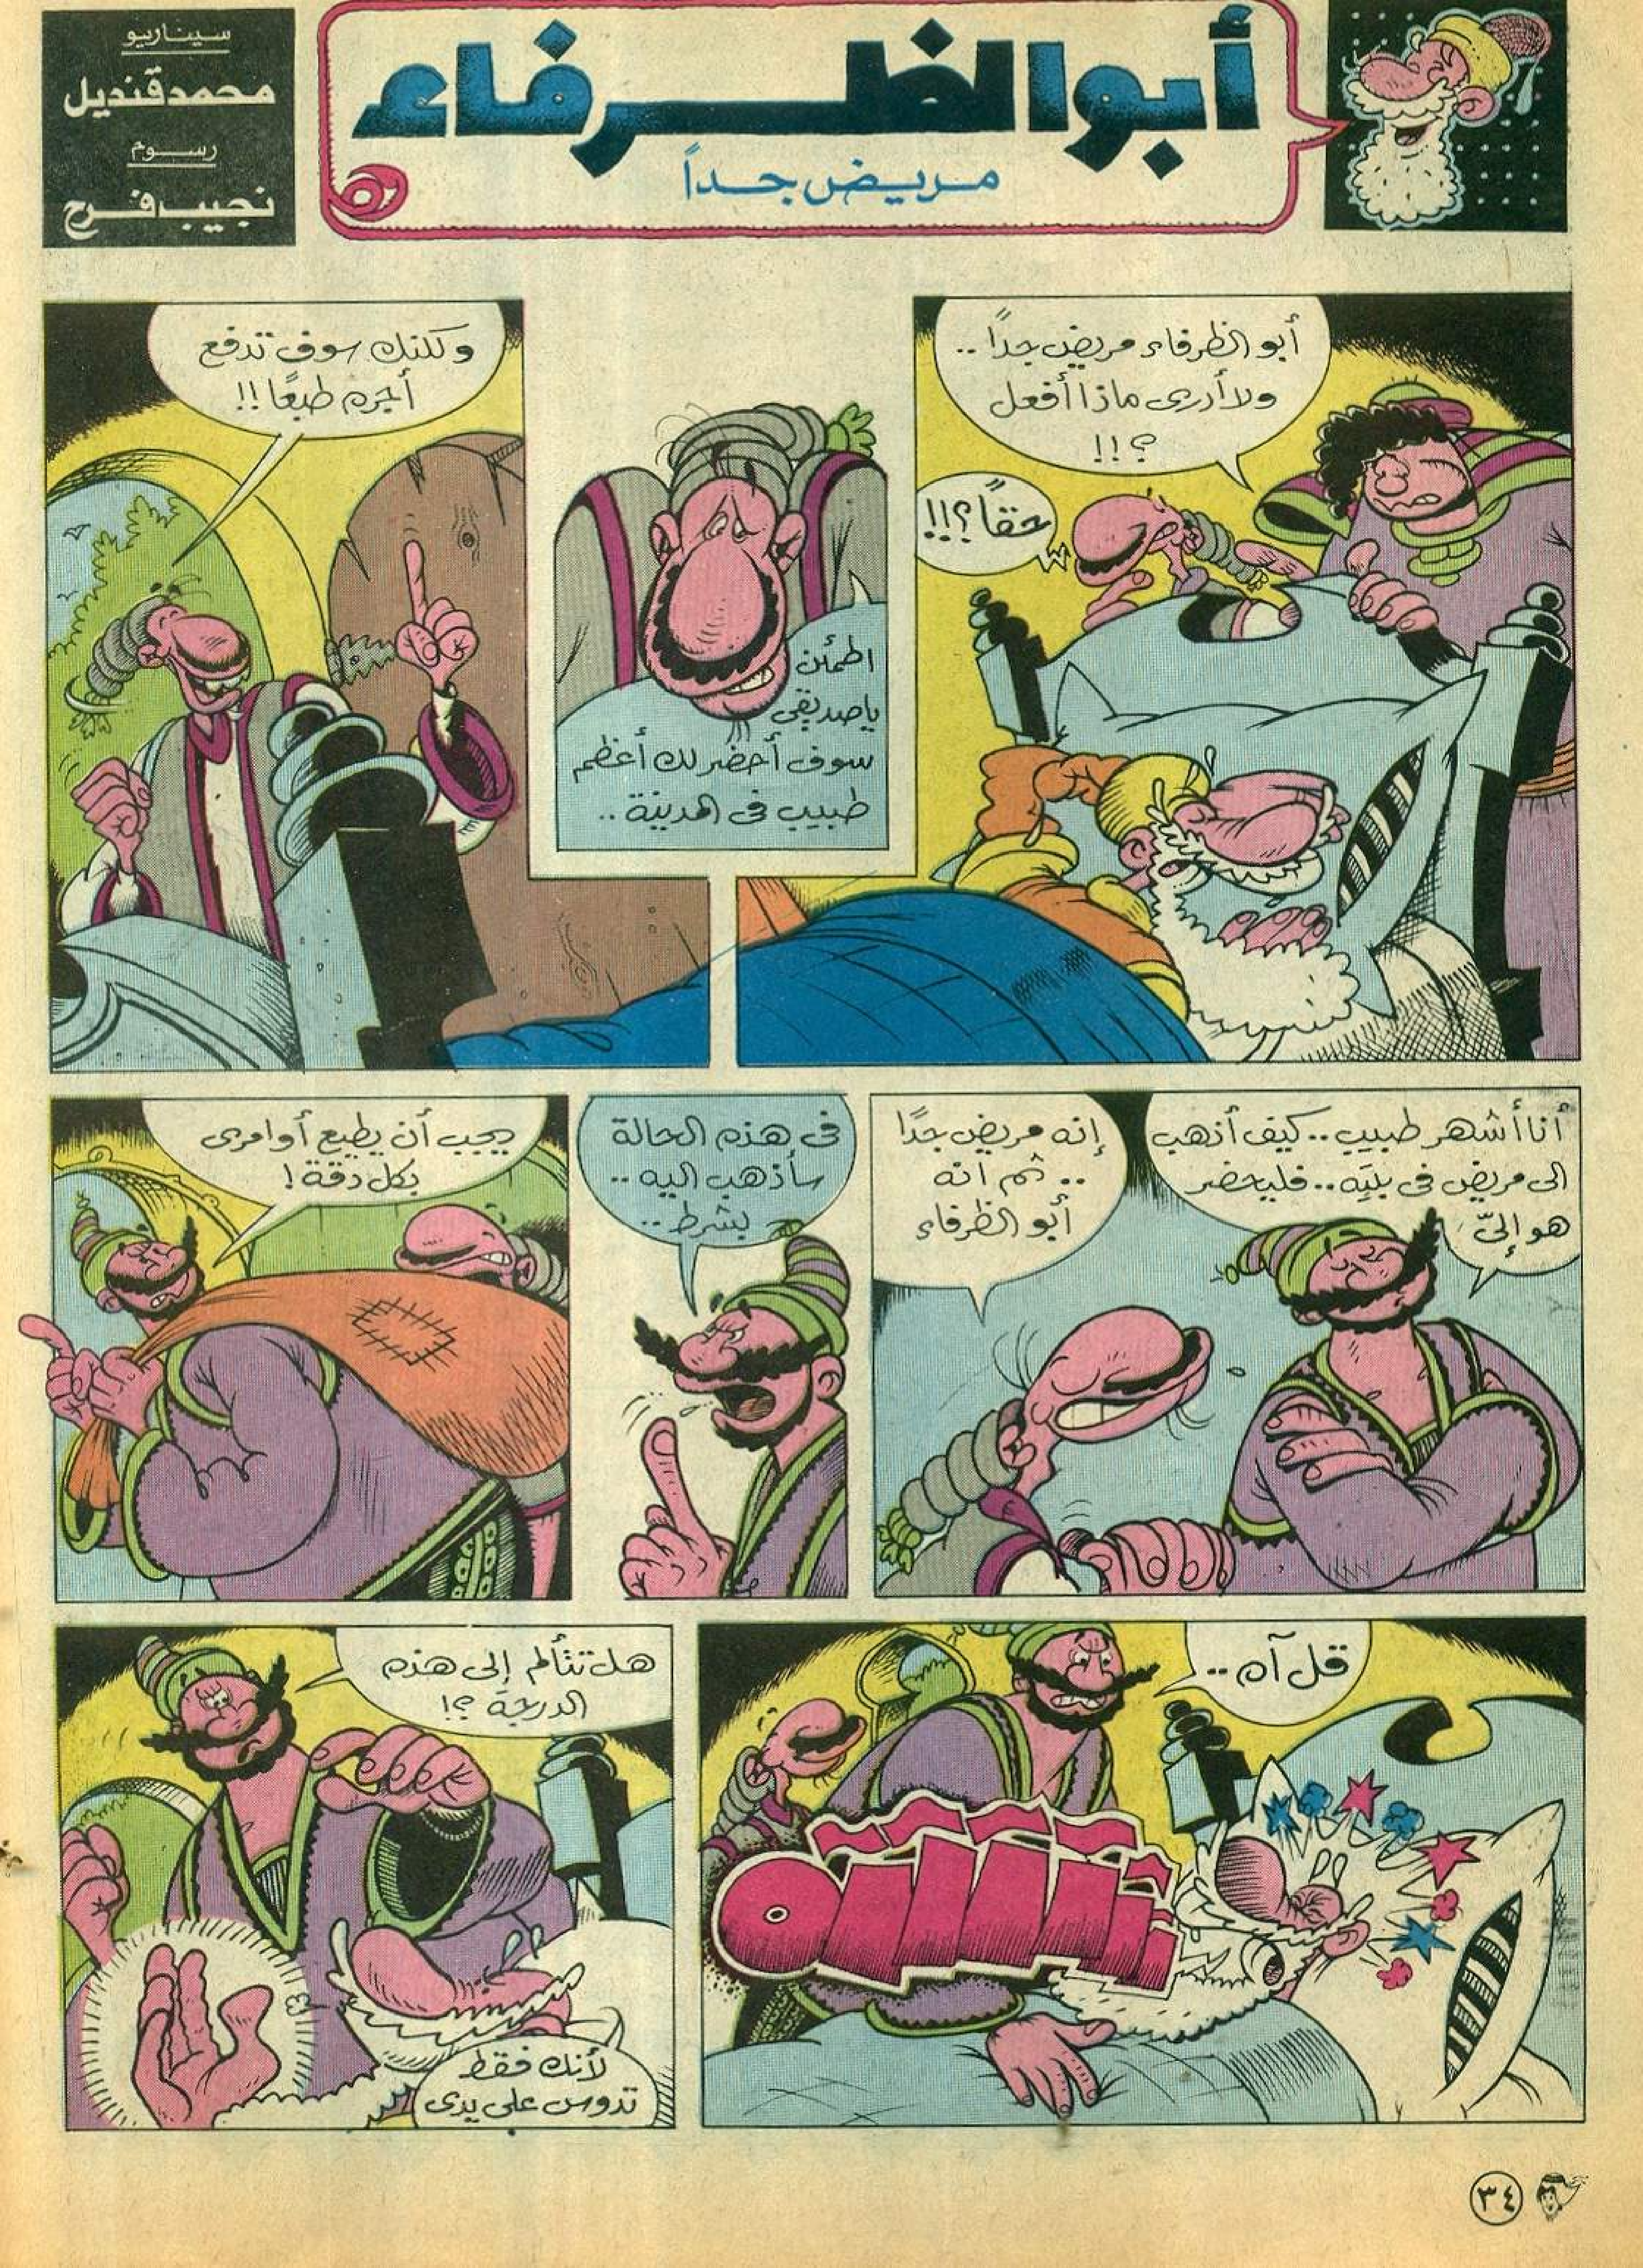 أبو الظرفاء
مريض جداً
سيناريو
محمد قنديل
رسوم
نجيب فرح
أبو الظرفاء مريض جدًا ..
ولا أدرى ماذا أفعل
؟!!
حقاً؟!!
اطمئن
ياصديقى
سوف أحضر لك أعظم
طبيب فى المدينة ..
ولكنك سوف تدفع
أجره طبعًا !!
أنا أشهر طبيب .. كيف أذهب
الى مريض فى بيته .. فليحضر
هو إلىّ
إنه مريض جدًا
.. ثم انه
أبو الظرفاء
فى هذه الحالة
سأذهب اليه ..
بشرط ..
يجب أن يطيع أوامرى
بكل دقة !
قل آه ..
هل تتألم إلى هذه
الدرجة ؟!
لأنك فقط
تدوس على يدى
٣٤